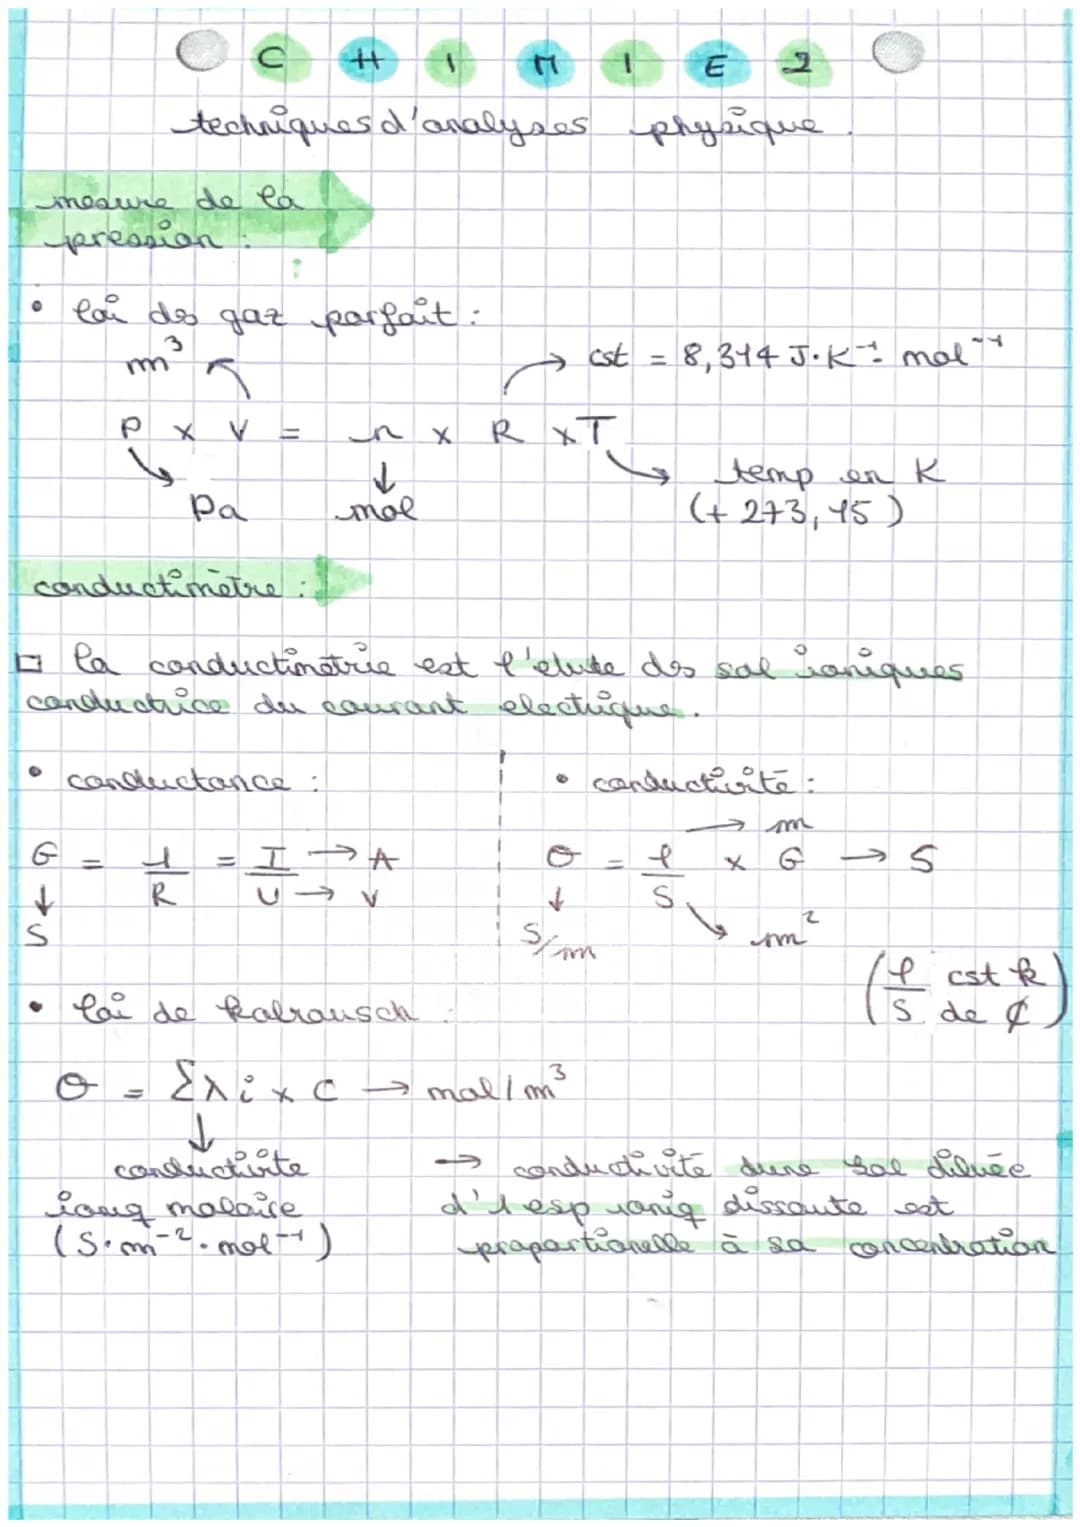 CHIMIE 2
techniques d'analyses physique.
mesure de la
pression :
• loi des gaz parfait :
m³ → cst = 8,314 J.K⁻¹. mol⁻¹
P x V = n x R x T
Pa mol temp en K
(+ 273,15)
conductimetre :
□ la conductimetrie est l'etute des sol ioniques
conductrice du courant electrique.
• conductance :
• conductivité :
→ m
G = 1/R = I/U → A → V
↓
S
σ = l/S x G → S
↓ S/m m²
(l/S cst k de ₵)
• loi de kolrausch :
σ = Σλi x C → mol/m³
↓
conductivite
ioniq molaire
(S.m⁻².mol⁻¹)
→ conductivité dune sol diluée
d'1 esp ioniq dissoute est
proportionelle à sa concentration